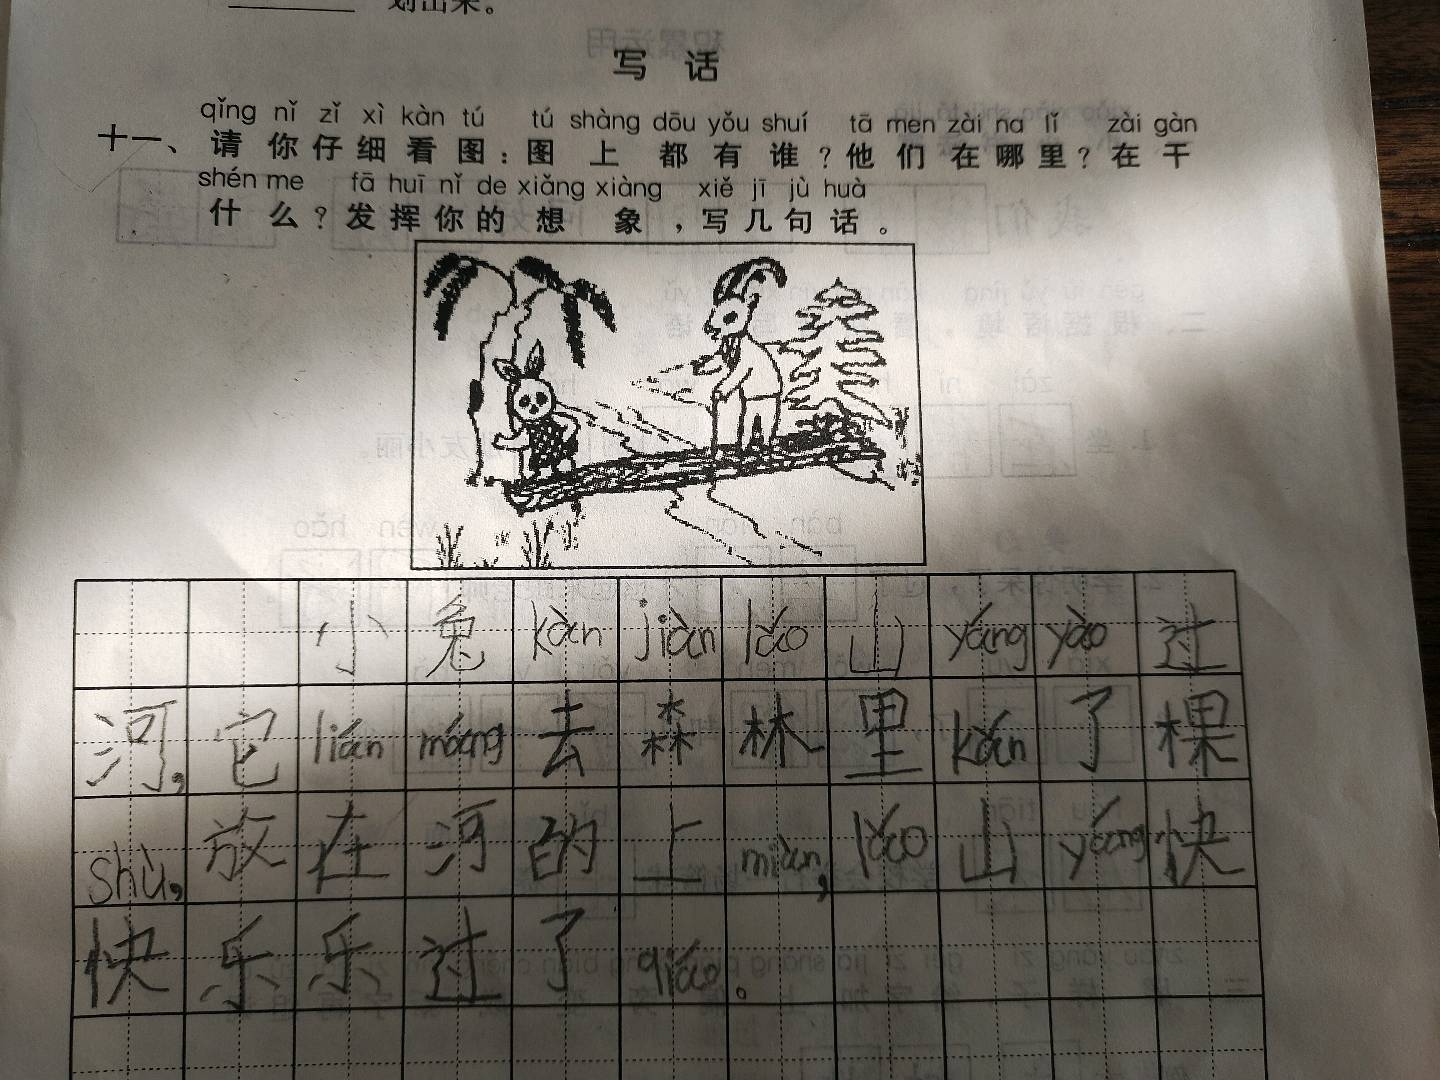 划出来。
写 话
qǐng nǐ zǐ xì kàn tú tú shàng dōu yǒu shuí tā men zài na lǐ zài gàn
十一、请你仔细看图:图上都有谁?他们在哪里?在干
shén me fā huī nǐ de xiǎng xiàng xiě jī jù huà
什么?发挥你的想象,写几句话。
小兔kàn jiàn lǎo山yáng yào过
河,它lián máng去森林里kán了棵
shù,放在河的上miàn,lǎo山yáng快
快乐乐过了qiáo。